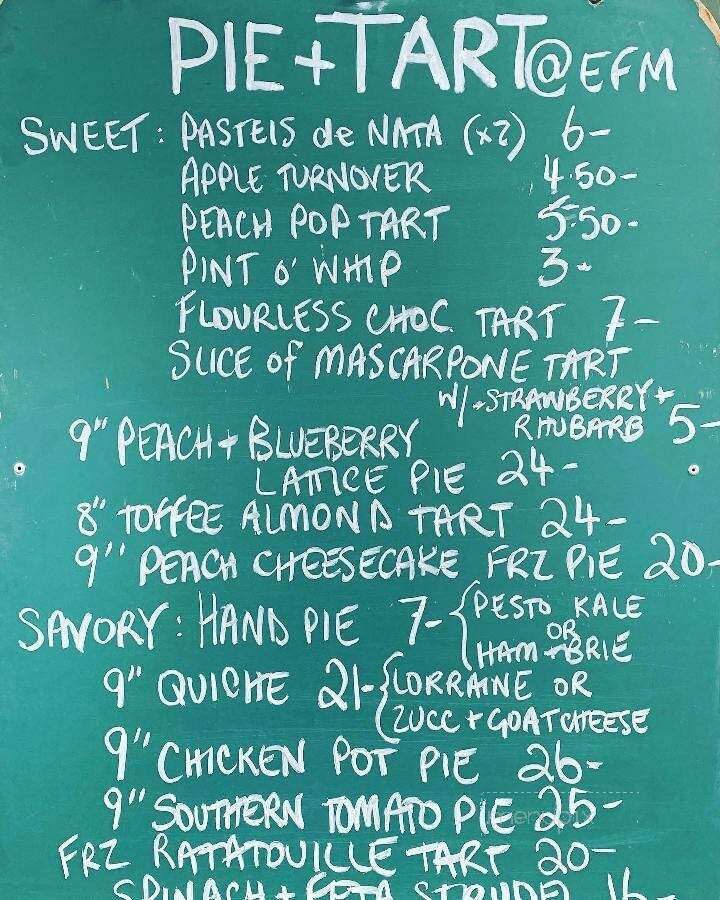 PIE + TART @ EFM
SWEET: PASTEIS de NATA (x2) 6-
APPLE TURNOVER 4.50-
PEACH POP TART 5.50-
PINT O' WHIP 3-
FLOURLESS CHOC TART 7-
SLICE of MASCARPONE TART
W/ STRAWBERRY +
RHUBARB 5-
9" PEACH + BLUEBERRY
LATTICE PIE 24-
8" TOFFEE ALMOND TART 24-
9" PEACH CHEESECAKE FRZ PIE 20-
SAVORY: HAND PIE 7- { PESTO KALE
OR
HAM + BRIE
9" QUICHE 21- { LORRAINE OR
ZUCC + GOAT CHEESE
9" CHICKEN POT PIE 26-
9" SOUTHERN TOMATO PIE 25-
FRZ RATATOUILLE TART 20-
SPINACH + FETA STRUDEL 16-